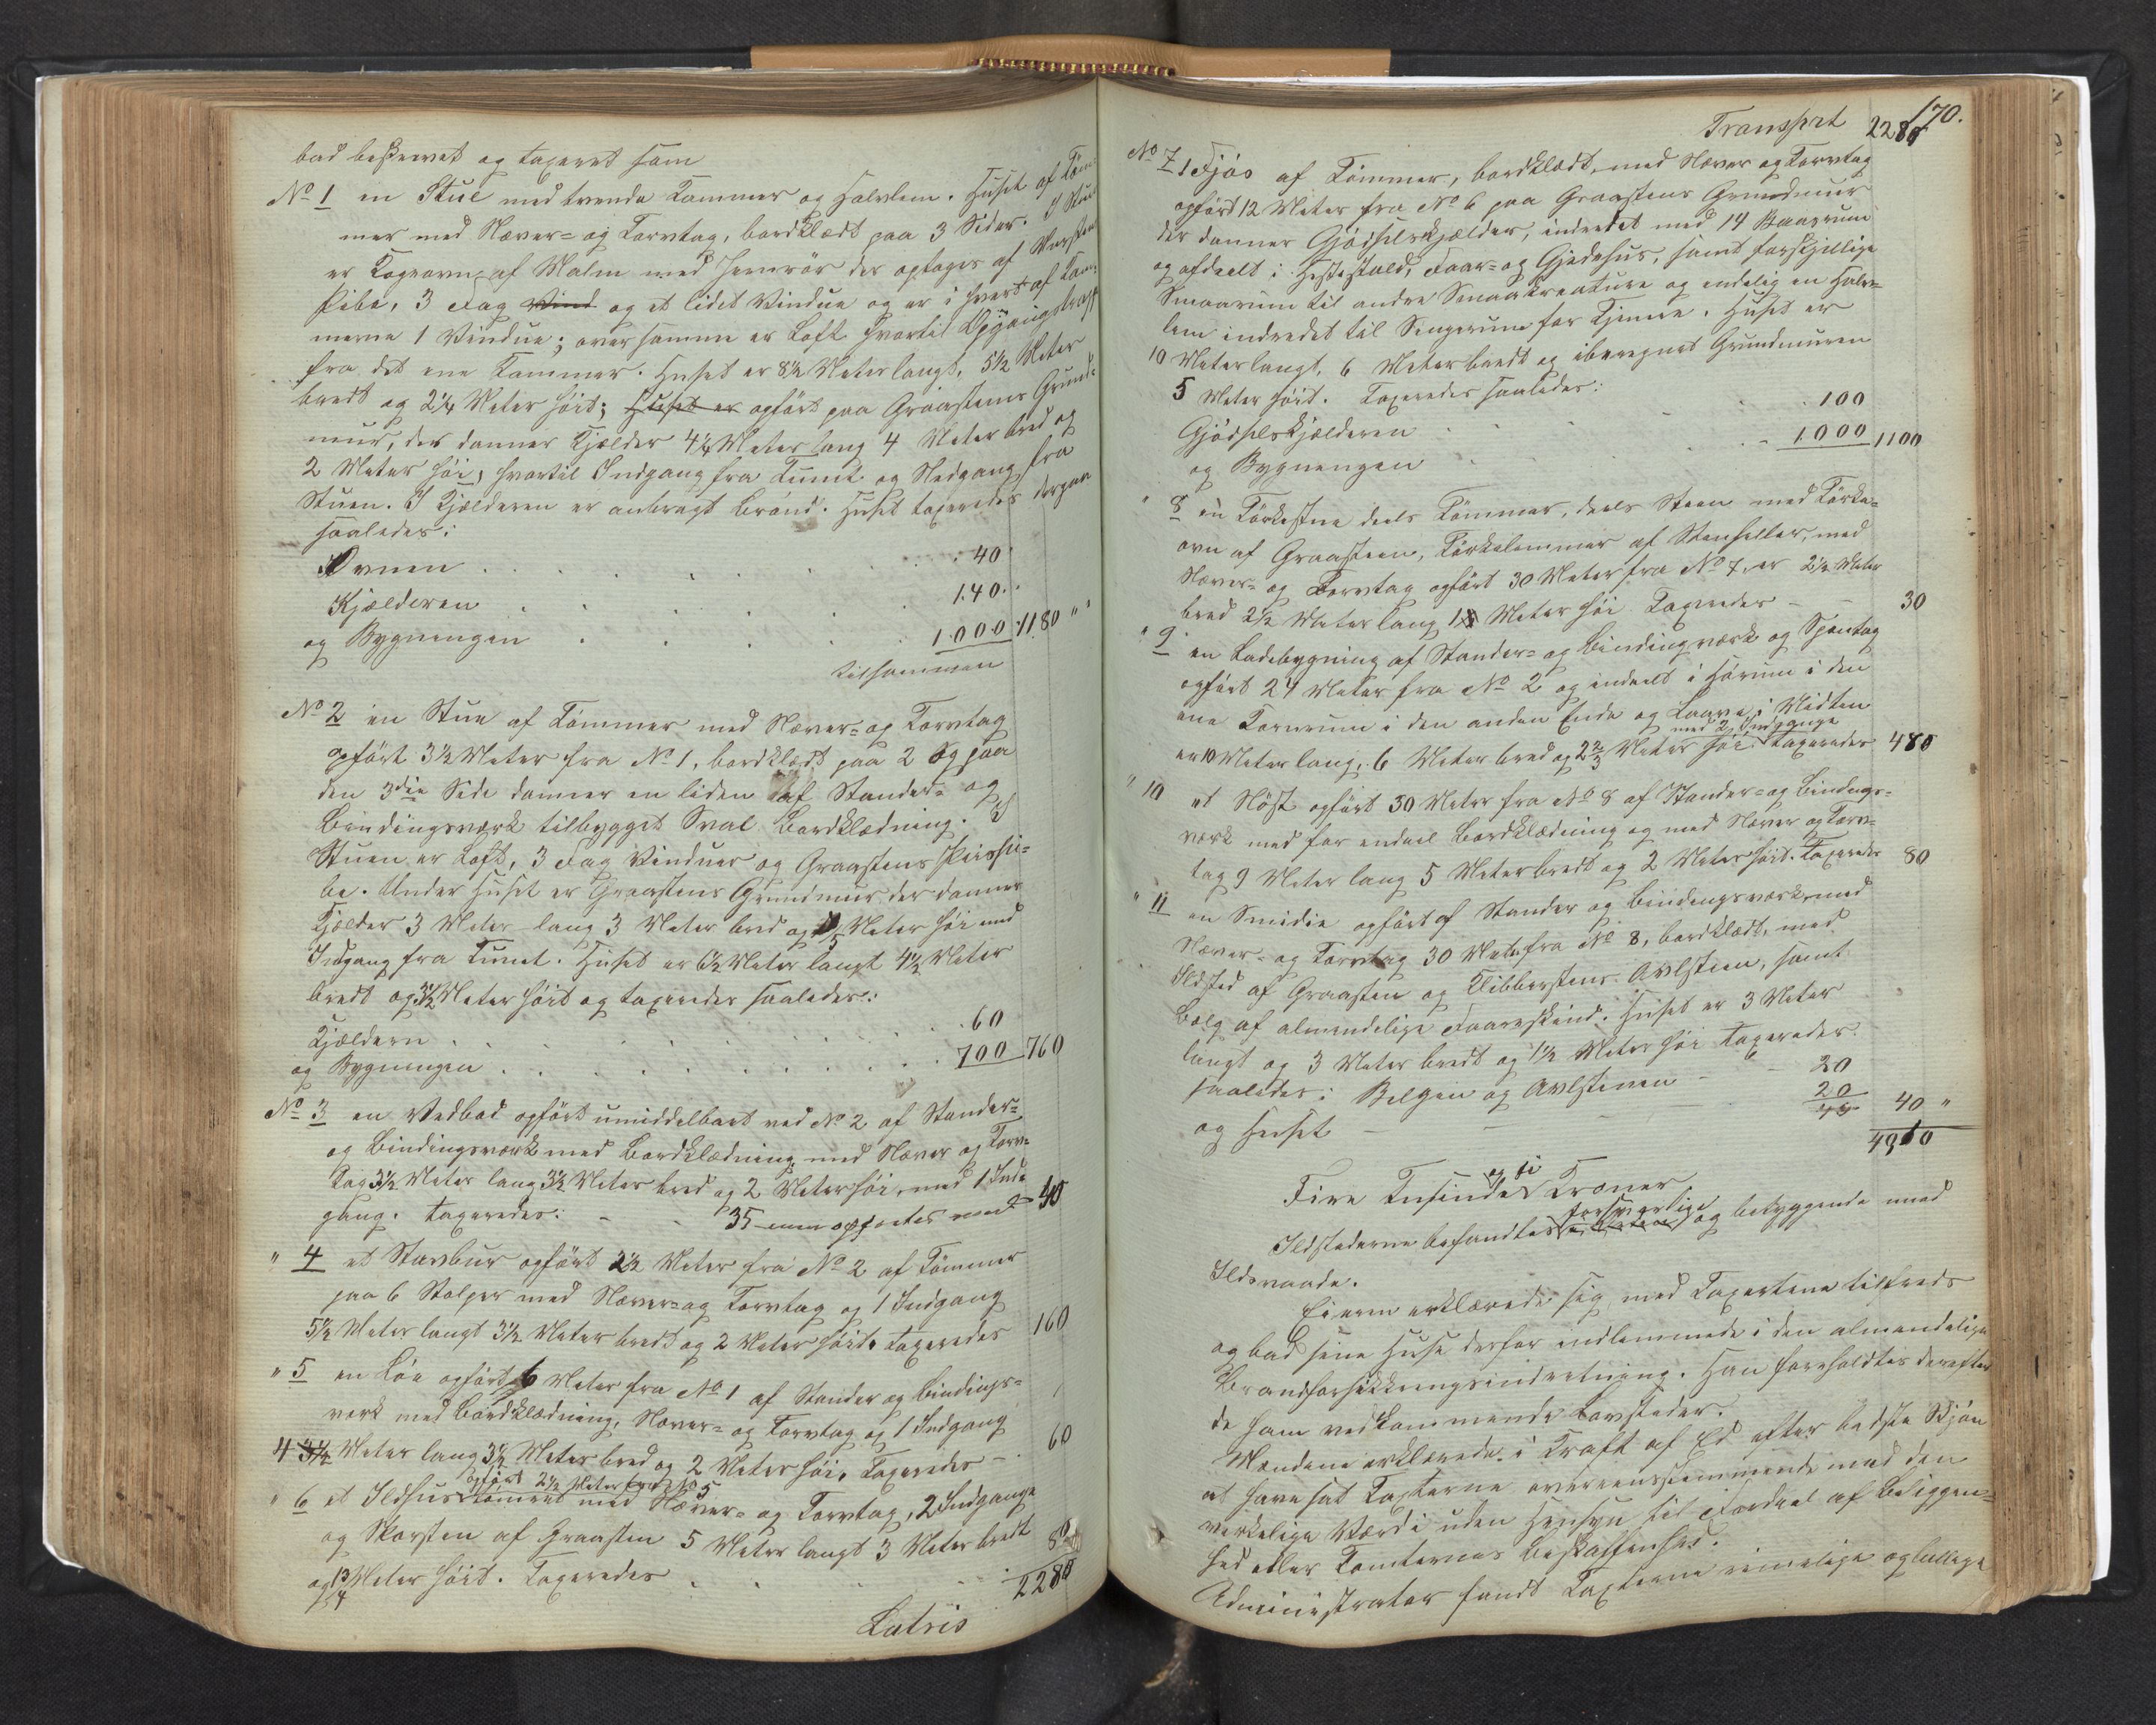 bad beskrevet og taxeret som
No 1 en Stue med tvende Kammer og Halvlem. Huset af Tøm-
mer med Næver- og Torvtag, bordklædt paa 3 Sider. I Stuen
er Kogeovn af Malm med Jernrør der optages af Murstens
Pibe, 3 Fag Vind og et lidet Vindue og er i hvert af Kam-
merne 1 Vindue; over samme er Loft hvortil Opgangstrap
fra det ene Kammer. Huset er 8 1/2 Meter langt, 5 1/2 Meter
bredt og 2 1/4 Meter høit; Huset er opført paa Graastens Grund-
mur, der danner Kjælder 4 1/4 Meter lang 4 Meter bred og
2 Meter høi, hvortil Indgang fra Tunet og Nedgang fra
Stuen. I Kjælderen er anbragt Brønd. Huset taxeredes derpaa
saaledes:
Ovnen 40
Kjælderen 140
og Bygningen 1000 1180 " "
tilsammen
No 2 en Stue af Tømmer med Næver- og Torvtag
opført 3 1/2 Meter fra No 1, bordklædt paa 2 og paa
den 3die Side danner en liden af Stander- og
Bindingsværk tilbygget Sval Bordklædning. I
Stuen er Loft, 3 Fag Vinduer og Graastens Peispi-
be. Under Huset er Graastens Grundmur der danner
Kjælder 3 Meter lang 3 Meter bred og Meter høi med
Indgang fra Tunet. Huset er 6 1/2 Meter langt 4 1/2 Meter
bredt og 3 1/2 Meter høit og taxeredes saaledes:
Kjældern 60
og Bygningen 700 760
No 3 en Vedbod opført umiddelbart ved No 2 af Stander-
og Bindingsværk med Bordklædning, med Næver og Torv-
tag 3 1/2 Meter lang 3 1/2 Meter bred og 2 Meter høi, med 1 Ind-
gang. taxeredes: - - 35 men opførtes med 40
" 4 et Stavbur opført 2 1/2 Meter fra No 2 af Tømmer
paa 6 Stolper med Næver- og Torvtag og 1 Indgang
5 1/2 Meter langt 3 1/2 Meter bredt og 2 Meter høit. taxeredes 160
" 5 en Løe opført 6 Meter fra No 1 af Stander og Bindings-
værk med Bordklædning, Næver- og Torvtag og 1 Indgang
4 3 1/2 Meter lang 3 1/2 Meter bred og 2 Meter høi, Taxeredes - 60
opført 2 1/2 Meter fra No 5
" 6 et Ildhus tømret med Næver- og Torvtag, 2 Indgange
og Skorsten af Graasten 5 Meter langt 3 Meter bredt
og 1 3/4 Meter høit. Taxeredes 80
2280
Latris
170.
Transport 2280
No 7 1 Fjøs af Tømmer, bordklædt, med Næver og Torvtag
opført 12 Meter fra No 6 paa Graastens Grundmur
der danner Gjødselskjælder, indredet med 14 Baasrum
og afdeelt i Hestestald, Faar- og Gjedehus, samt forskjellige
Smaarum til andre Smaakreature og endelig en Halv-
lem indredet til Sengerum for Tjenere. Huset er
10 Meter langt, 6 Meter bredt og iberegnet Grundmuren
5 Meter høit. Taxeredes saaledes:
Gjødselskjælderen 100
og Bygningen 1000 1100
" 8 en Tørkestue deels Tømmer, deels Steen med Tørke-
ovn af Graasteen, Tørkelemmer af Stenheller, med
Næver- og Torvtag opført 30 Meter fra No 7, er 2 1/2 Meter
bred 2 1/2 Meter lang 1 Meter høi Taxeredes - - 30
" 9 en Ladebygning af Stander- og Bindingværk og Spontag
opført 24 Meter fra No 2 og indeelt i Hørum i den
ene Kornrum i den anden Ende og Laave i Midten
med 2 Indgange
er 10 Meter lang, 6 Meter bred og 2 2/3 Meter høi taxeredes 480
" 10 et Nøst opført 30 Meter fra No 8 af Stander- og Bindings-
værk med for endeel Bordklædning og med Næver og Torv-
tag 9 Meter lang 5 Meter bredt og 2 Meter høit. Taxeredes 80
" 11 en Smidie opført af Stander og Bindingsværk med
Næver- og Torvtag 30 Meter fra No 8, bordklædt, med
Ildsted af Graasten og Klibberstens Avlsteen, samt
Bælg af almindelige Faareskind. Huset er 3 Meter
langt og 3 Meter bredt og 1 1/2 Meter høi taxeredes
saaledes: Belgen og Avlstenen - - 20
og Huset - - 20 40 "
40
4010
og ti
Fire Tusinde Kroner
forsvarlige
Ildstederne befandtes og betryggende mod
Ildsvaade.
Eieren erklærede sig med Taxterne tilfreds
og bad sine Huse derfor indlemmede i den almindelige
Brandforsikkringsindretning. Han foreholdtes derefter
de ham vedkommende Lovsteder.
Mændene erklærede i Kraft af Ed efter bedste Skjøn
at have sat Taxterne overeensstemmende med den
verkelige Værdi uden Hensyn til Fordeel af Beliggen-
hed eller Tomternes Beskaffenhed.
Administrator fandt Taxterne rimelige og billige